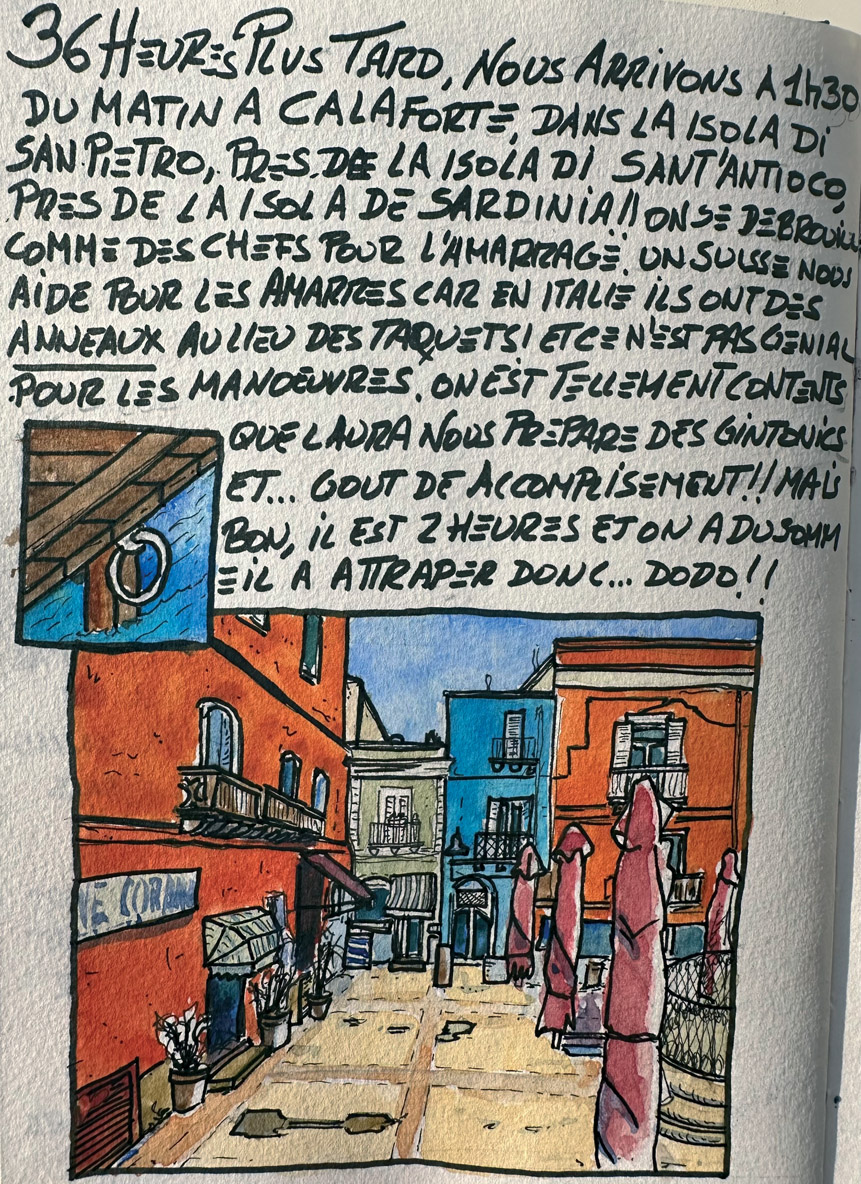 36 HEURES PLUS TARD, NOUS ARRIVONS A 1h30
DU MATIN A CALAFORTE, DANS LA ISOLA Di
SAN PIETRO, PRES DE LA ISOLA Di SANT'ANTIOCO,
PRES DE LA ISOLA DE SARDINIA!! ON SE DEBROUILLE
COMME DES CHEFS POUR L'AMARRAGE. UN SUISSE NOUS
AIDE POUR LES AMARRES CAR EN ITALIE ILS ONT DES
ANNEAUX AU LIEU DES TAQUETS! ET CE N'EST PAS GENIAL
POUR LES MANOEUVRES. ON EST TELLEMENT CONTENTS
QUE LAURA NOUS PREPARE DES GINTONICS
ET... GOUT DE ACCOMPLISEMENT!! MAIS
BON, iL EST 2 HEURES ET ON A DU SOMM
EIL A ATTRAPER DONC... DODO!!